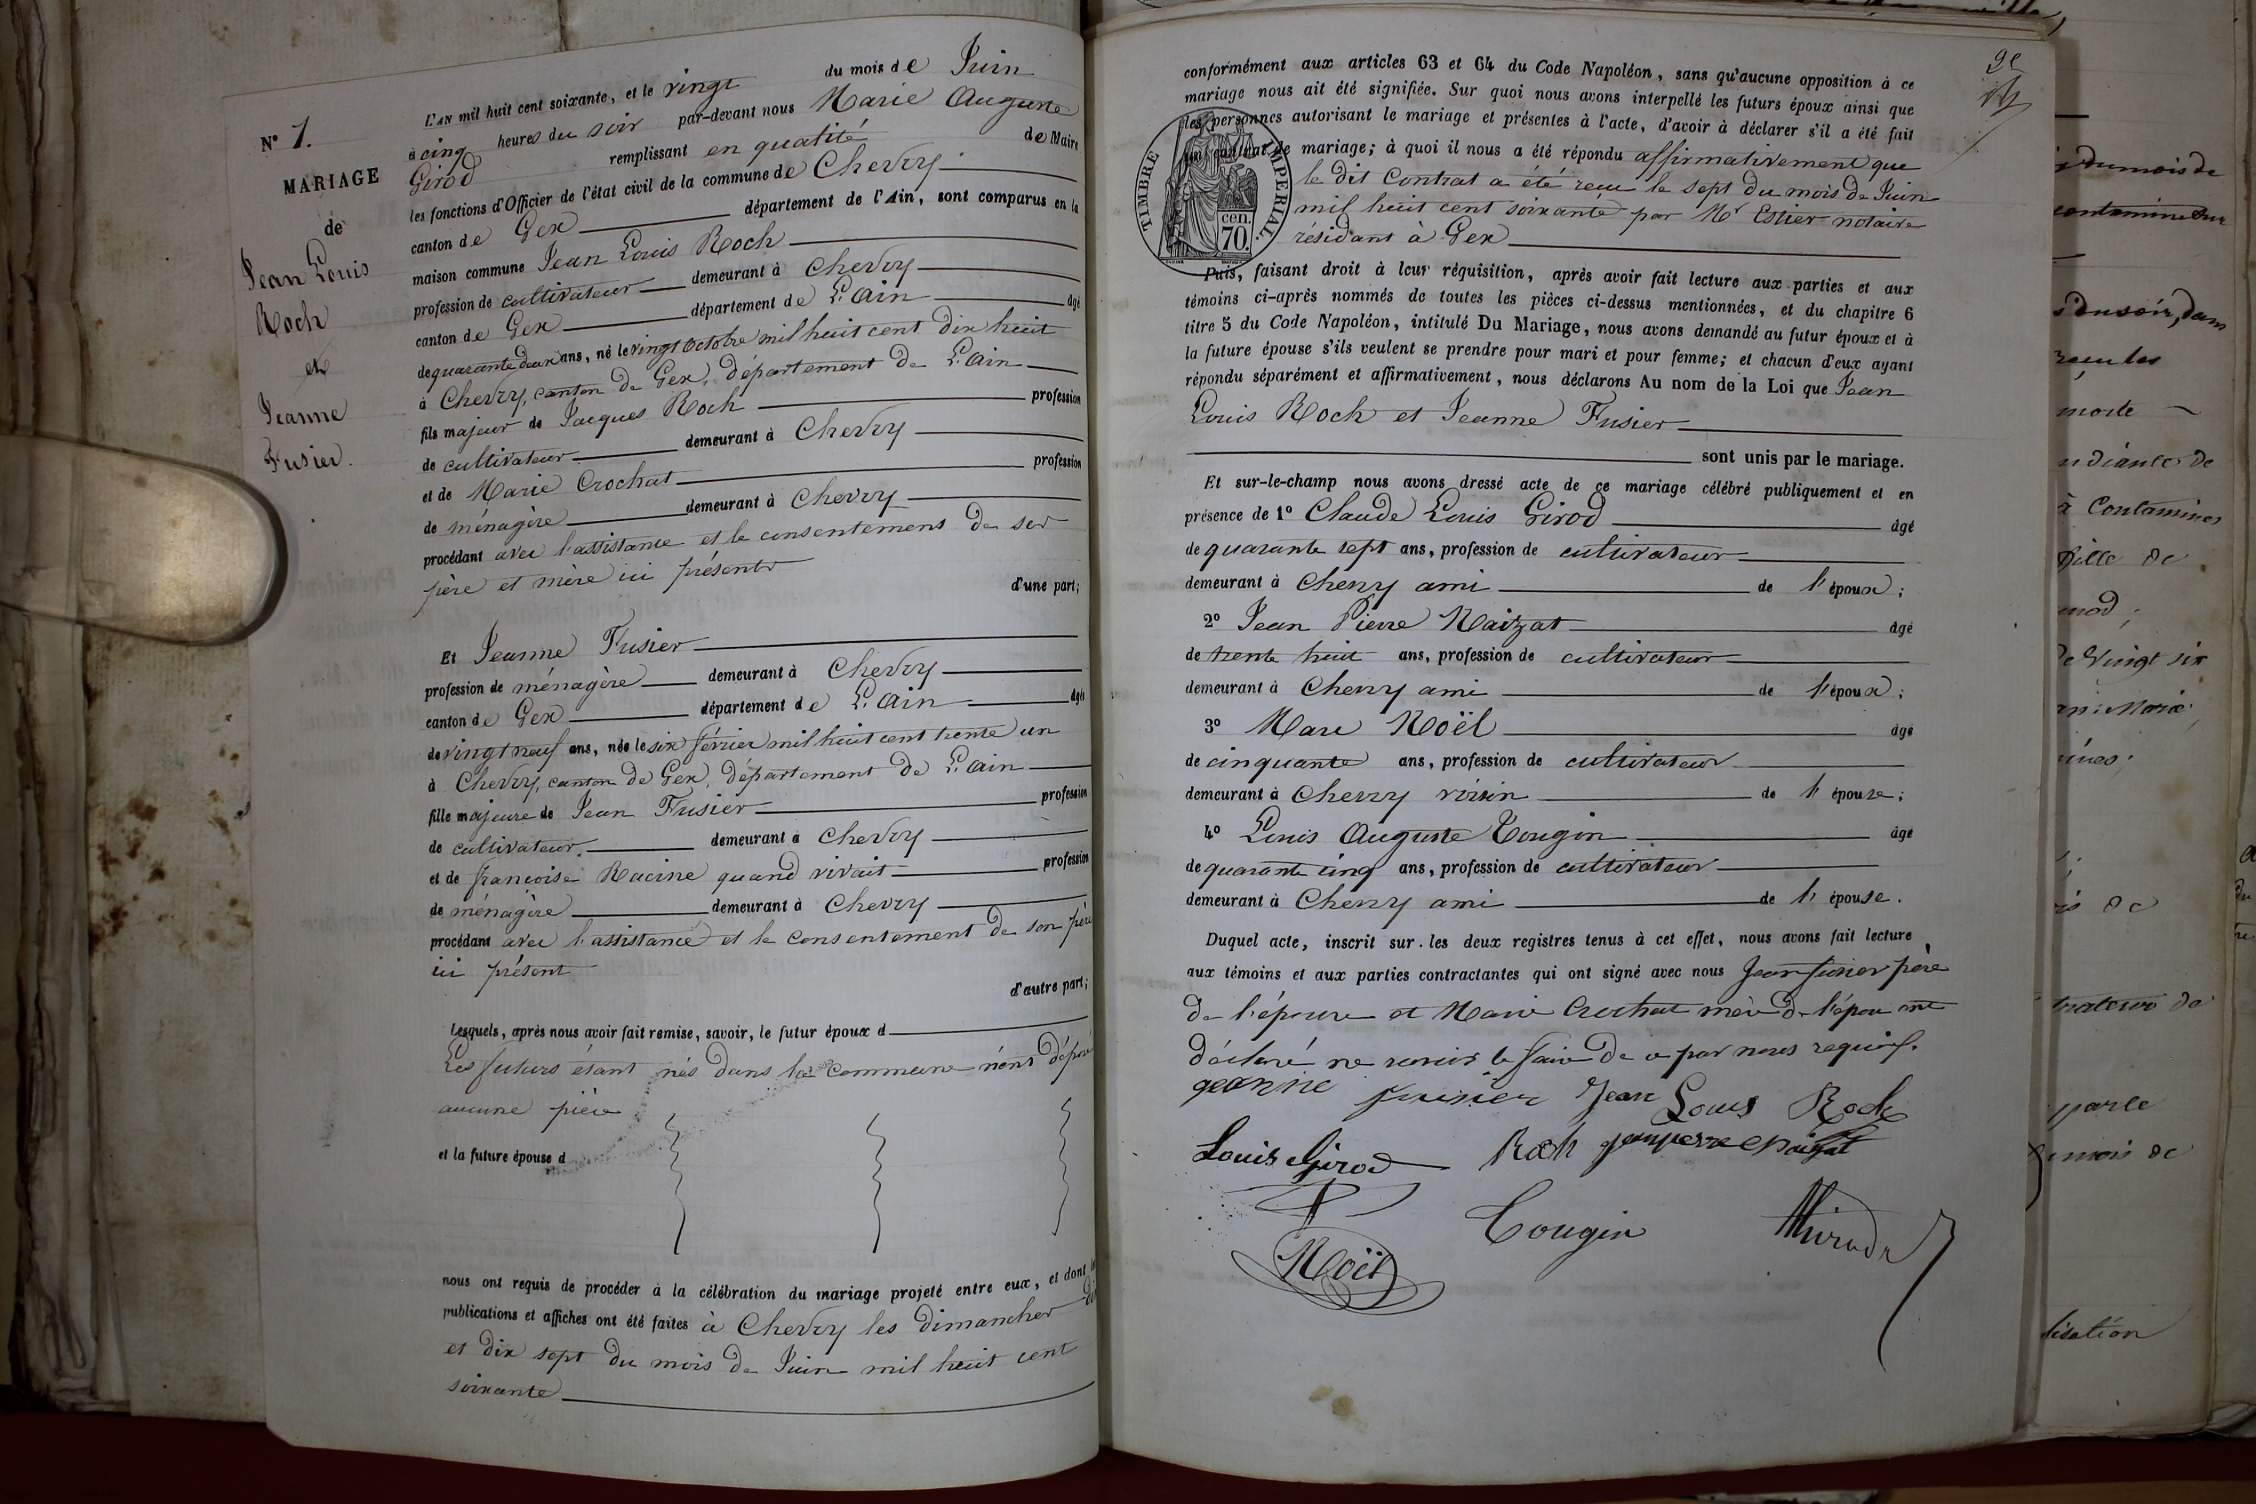 N° 1.
MARIAGE
de
Jean Louis
Roch
et
Jeanne
Fusier.
L'AN mil huit cent soixante, et le vingt du mois de Juin
à cinq heures du soir par-devant nous Marie Auguste
Girod remplissant en qualité de Maire
les fonctions d'Officier de l'état civil de la commune de Chevry
canton de Gex département de l'Ain, sont comparus en la
maison commune Jean Louis Roch
profession de cultivateur demeurant à Chevry
canton de Gex département de L'Ain âgé
de quarante deux ans, né le vingt octobre mil huit cent dix huit
à Chevry, canton de Gex, département de L'Ain
fils majeur de Jacques Roch profession
de cultivateur demeurant à Chevry
et de Marie Crochat profession
de ménagère demeurant à Chevry
procédant avec l'assistance et le consentement de ses
père et mère ici présents
d'une part;
Et Jeanne Fusier
profession de ménagère demeurant à Chevry
canton de Gex département de L'Ain âgée
de vingt neuf ans, née le six février mil huit cent trente un
à Chevry, canton de Gex, département de L'Ain
fille majeure de Jean Fusier profession
de cultivateur demeurant à Chevry
et de françoise Racine quand vivait profession
de ménagère demeurant à Chevry
procédant avec l'assistance et le consentement de son père
ici présent
d'autre part;
Lesquels, après nous avoir fait remise, savoir, le futur époux d
Les futurs étant nés dans la commune n'ont déposé
aucune pièce
et la future épouse d
nous ont requis de procéder à la célébration du mariage projeté entre eux, et dont les
publications et affiches ont été faites à Chevry les dimanches dix
et dix sept du mois de Juin mil huit cent
soixante
conformément aux articles 63 et 64 du Code Napoléon, sans qu'aucune opposition à ce
mariage nous ait été signifiée. Sur quoi nous avons interpellé les futurs époux ainsi que
les personnes autorisant le mariage et présentes à l'acte, d'avoir à déclarer s'il a été fait
un contrat de mariage; à quoi il nous a été répondu affirmativement que
le dit Contrat a été reçu le sept du mois de Juin
mil huit cent soixante par Mr Estier notaire
résidant à Gex
TIMBRE IMPERIAL.
cen.
70.
Puis, faisant droit à leur réquisition, après avoir fait lecture aux parties et aux
témoins ci-après nommés de toutes les pièces ci-dessus mentionnées, et du chapitre 6
titre 5 du Code Napoléon, intitulé Du Mariage, nous avons demandé au futur époux et à
la future épouse s'ils veulent se prendre pour mari et pour femme; et chacun d'eux ayant
répondu séparément et affirmativement, nous déclarons Au nom de la Loi que Jean
Louis Roch et Jeanne Fusier
sont unis par le mariage.
Et sur-le-champ nous avons dressé acte de ce mariage célébré publiquement et en
présence de 1° Claude Louis Girod âgé
de quarante sept ans, profession de cultivateur
demeurant à Chevry ami de l'époux;
2° Jean Pierre Maizat âgé
de trente huit ans, profession de cultivateur
demeurant à Chevry ami de l'époux;
3° Marc Noël âgé
de cinquante ans, profession de cultivateur
demeurant à Chevry voisin de l'épouse;
4° Louis Auguste Tougin âgé
de quarante cinq ans, profession de cultivateur
demeurant à Chevry ami de l'épouse.
Duquel acte, inscrit sur les deux registres tenus à cet effet, nous avons fait lecture
aux témoins et aux parties contractantes qui ont signé avec nous Jean fusier père
de l'épouse et Marie Crochat mère de l'époux ont
déclaré ne savoir le faire de ce par nous requis.
geanne fusier Jean Louis Roch
Louis Girod Roch
Noël Tougin
du mois de
reçu les
morte
à Contamines
fille de
de vingt six
parle
mois de